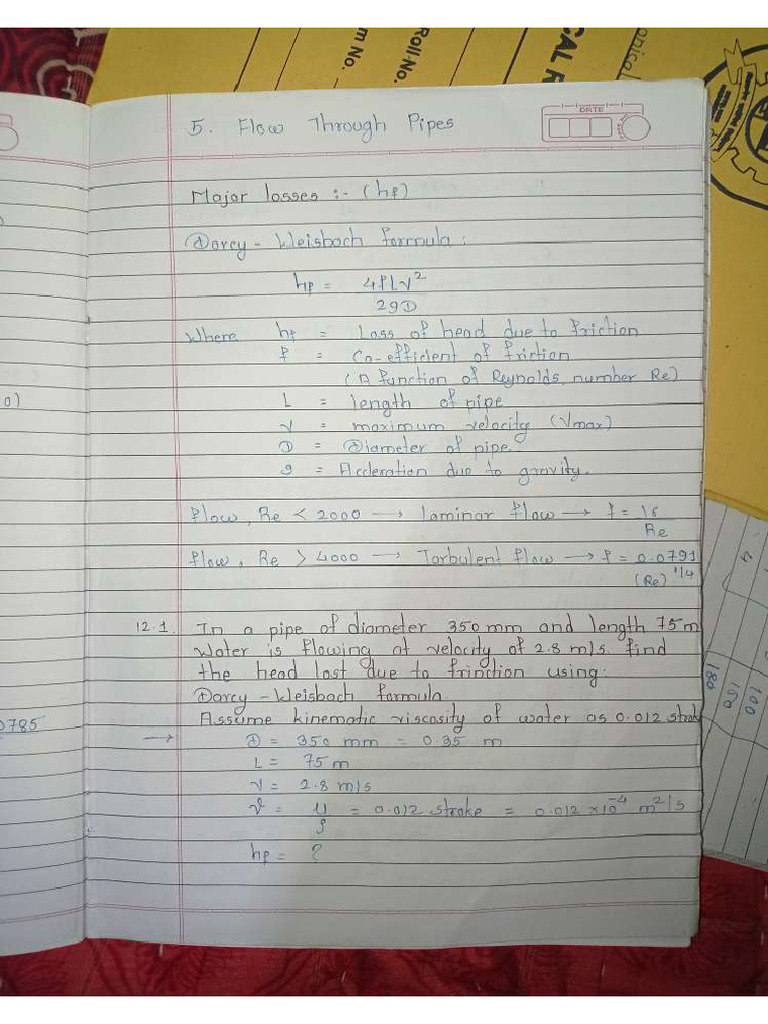 m No.
Roll-No.
CAL R
onical
5. Flow Through Pipes
DATE
Major losses :- (hf)
Darcy - Weisbach formula :
hf = 4fLV²
2gD
Where hf = Loss of head due to friction
f = Co-efficient of friction
(A function of Reynolds, number Re)
L = length of pipe
V = maximum velocity (Vmax)
D = Diameter of pipe.
g = Accleration due to gravity.
0)
flow, Re < 2000 → Laminar flow → f = 16
Re
flow, Re > 4000 → Torbulent flow → f = 0.0791
(Re)^1/4
12.1. In a pipe of diameter 350 mm and length 75 m
Water is flowing at velocity of 2.8 m/s. find
the head lost due to frinction using:
Darcy - Weisbach formula
Assume kinematic viscosity of water as 0.012 stroke
→ D = 350 mm = 0.35 m
L = 75 m
V = 2.8 m/s
ν = μ = 0.012 stroke = 0.012 × 10⁻⁴ m²/s
ρ
hf = ?
0785
100
160
180